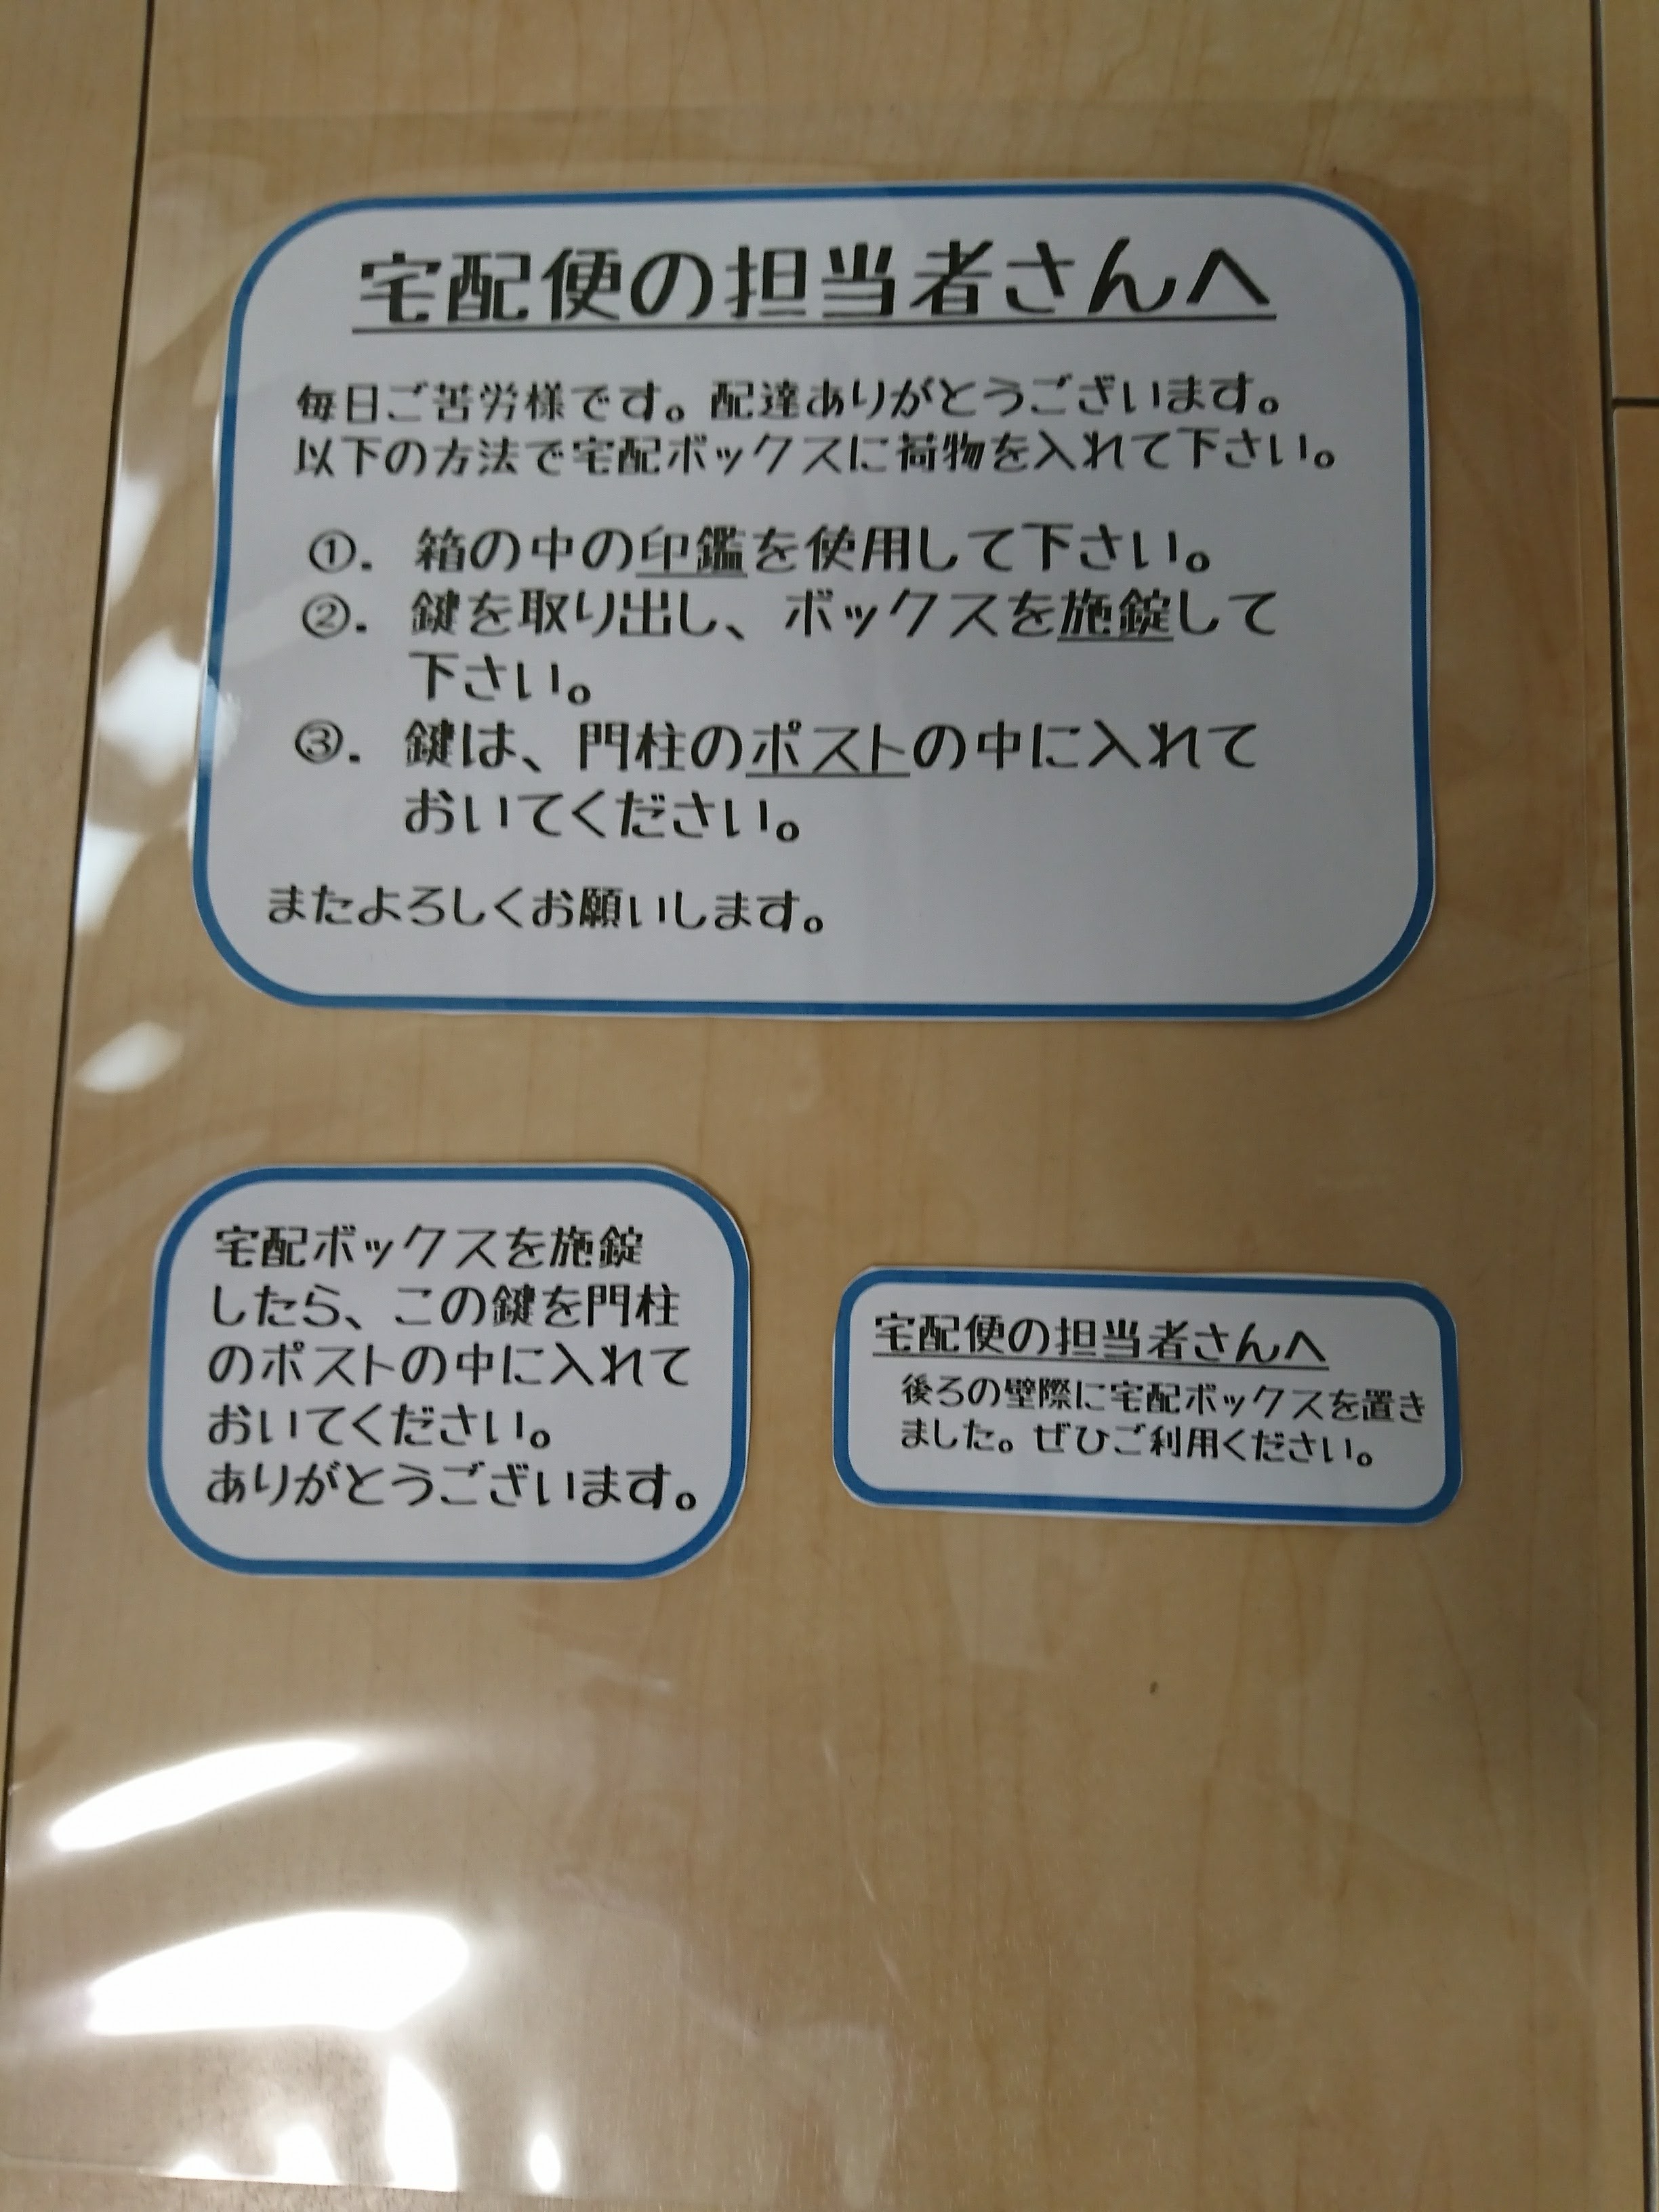 宅配便の担当者さんへ
毎日ご苦労様です。配達ありがとうございます。
以下の方法で宅配ボックスに荷物を入れて下さい。
①. 箱の中の印鑑を使用して下さい。
②. 鍵を取り出し、ボックスを施錠して
下さい。
③. 鍵は、門柱のポストの中に入れて
おいてください。
またよろしくお願いします。
宅配ボックスを施錠
したら、この鍵を門柱
のポストの中に入れて
おいてください。
ありがとうございます。
宅配便の担当者さんへ
後ろの壁際に宅配ボックスを置き
ました。ぜひご利用ください。